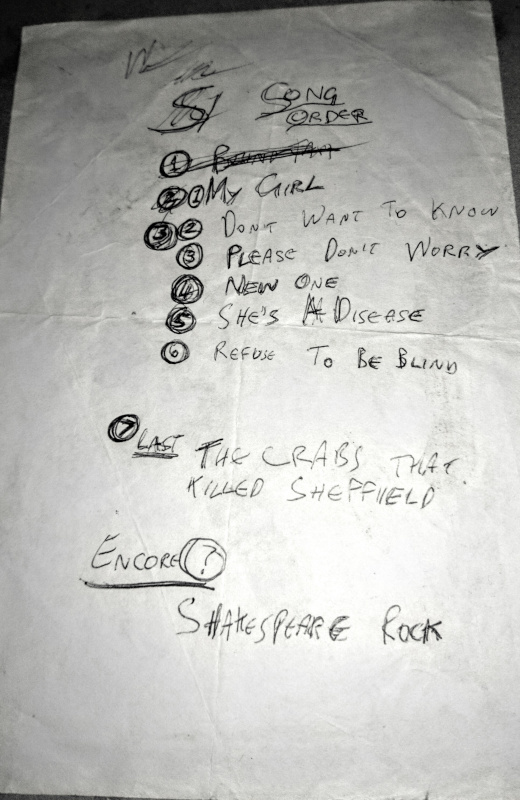 SONG
ORDER
①
② ① MY GIRL
③ ② DON'T WANT TO KNOW
③ PLEASE DON'T WORRY
④ NEW ONE
⑤ SHE'S A DISEASE
⑥ REFUSE TO BE BLIND
⑦ LAST THE CRABS THAT
KILLED SHEFFIELD
ENCORE ?
SHAKESPEARE ROCK